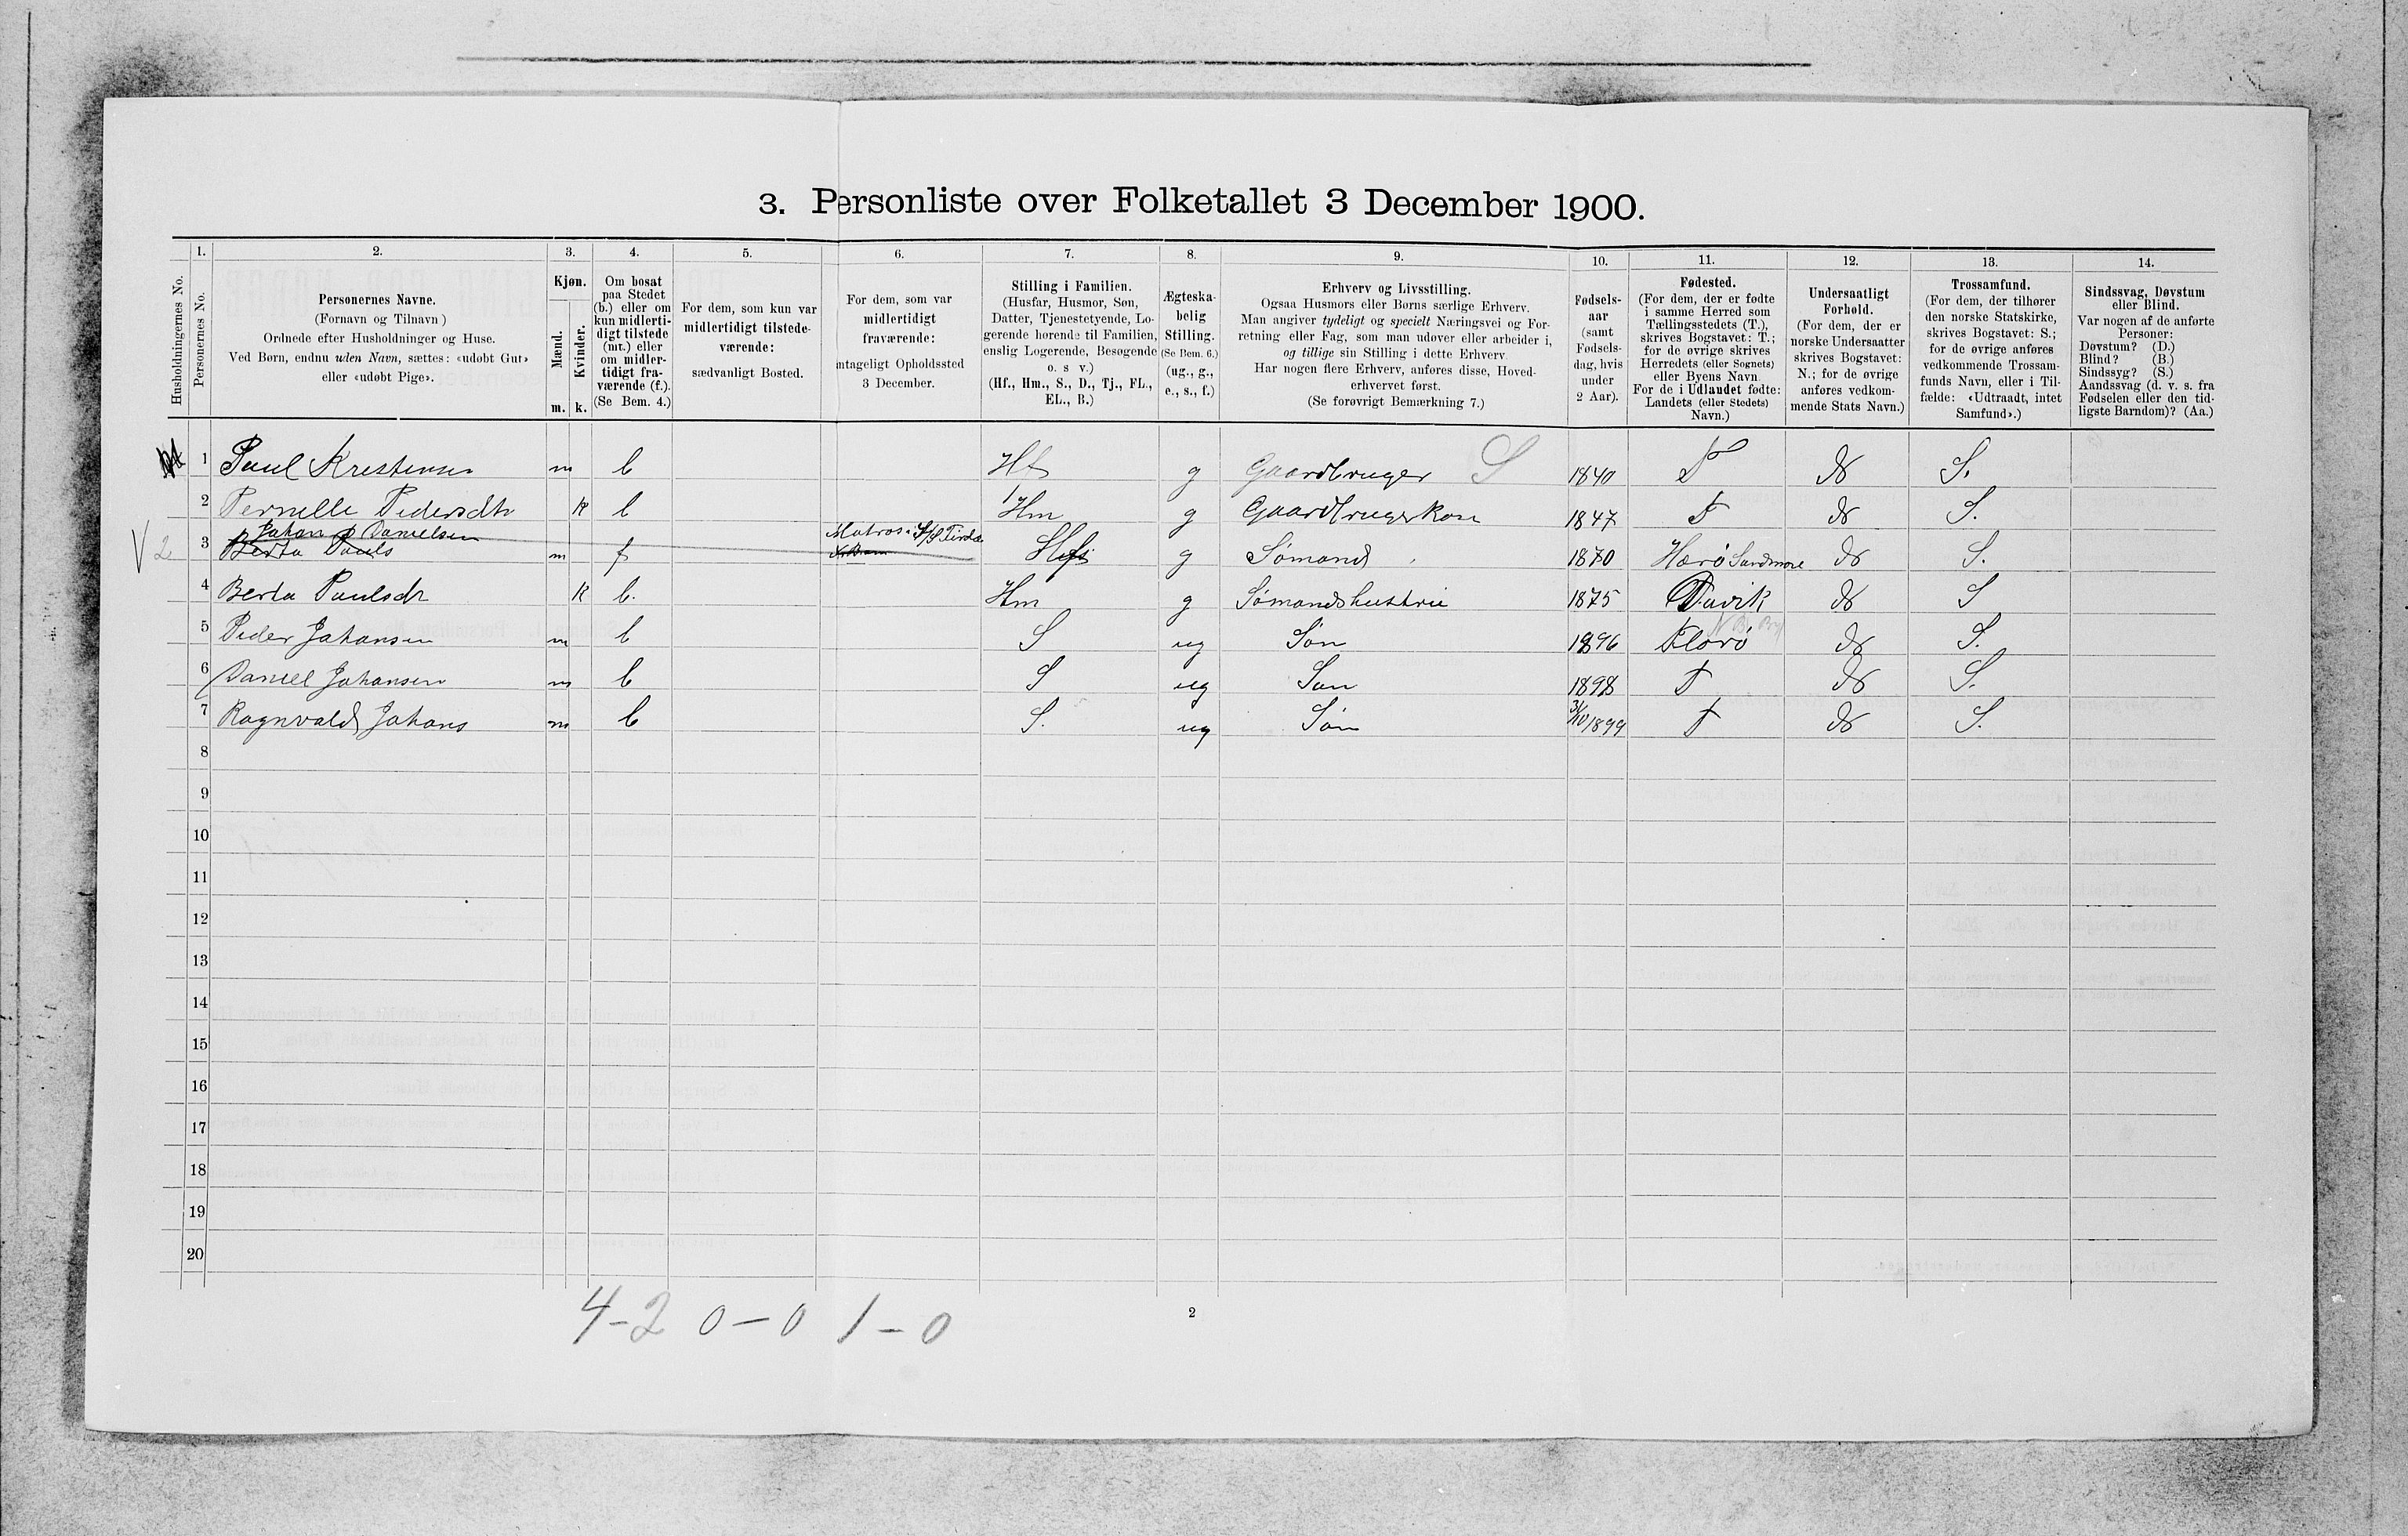 3. Personliste over Folketallet 3 December 1900.
1. 2. 3. 4. 5. 6. 7. 8. 9. 10. 11. 12. 13. 14.
Husholdningernes No.
Personernes No.
Personernes Navne.
(Fornavn og Tilnavn)
Ordnede efter Husholdninger og Huse.
Ved Børn, endnu uden Navn, sættes: «udøbt Gut»
eller «udøbt Pige».
Kjøn.
Mænd.
Kvinder.
m. k.
Om bosat
paa Stedet
(b.) eller om
kun midlerti-
digt tilstede
(mt.) eller
om midler-
tidigt fra-
værende (f.).
(Se Bem. 4.)
For dem, som kun var
midlertidigt tilstede-
værende:
sædvanligt Bosted.
For dem, som var
midlertidigt
fraværende:
ntageligt Opholdssted
3 December.
Stilling i Familien.
(Husfar, Husmor, Søn,
Datter, Tjenestetyende, Lo-
gerende hørende til Familien,
enslig Logerende, Besøgende
o. s v.)
(Hf., Hm., S., D., Tj., FL.,
EL., B.)
Ægteska-
belig
Stilling.
(Se Bem. 6.)
(ug., g.,
e., s., f.)
Erhverv og Livsstilling.
Ogsaa Husmors eller Børns særlige Erhverv.
Man angiver tydeligt og specielt Næringsvei og For-
retning eller Fag, som man udøver eller arbeider i,
og tillige sin Stilling i dette Erhverv.
Har nogen flere Erhverv, anføres disse, Hoved-
erhvervet først.
(Se forøvrigt Bemærkning 7.)
Fødsels-
aar
(samt
Fødsels-
dag, hvis
under
2 Aar).
Fødested.
(For dem, der er fødte
i samme Herred som
Tællingsstedets (T.),
skrives Bogstavet: T.;
for de øvrige skrives
Herredets (eller Sognets)
eller Byens Navn
For de i Udlandet fødte:
Landets (eller Stedets)
Navn.)
Undersaatligt
Forhold.
(For dem, der er
norske Undersaatter
skrives Bogstavet:
N.; for de øvrige
anføres vedkom-
mende Stats Navn.)
Trossamfund.
(For dem, der tilhører
den norske Statskirke,
skrives Bogstavet: S.;
for de øvrige anføres
vedkommende Trossam-
funds Navn, eller i Til-
fælde: «Udtraadt, intet
Samfund».)
Sindssvag, Døvstum
eller Blind.
Var nogen af de anførte
Personer:
Døvstum? (D.)
Blind? (B.)
Sindssyg? (S.)
Aandssvag (d. v. s. fra
Fødselen eller den tid-
ligste Barndom)? (Aa.)
1 Paul Kristensen m b Hf g Gaardbruger S 1840 T N S.
2 Pernelle Pedersdtr k b Hm g Gaardbrugerkone 1847 T N S.
Johan P Danielsen Matros i S/S Firda
V 2 3 Berta Pauls m f Hf g Sømand 1870 Herø Søndmøre N S.
4 Berta Paulsdr k b. Hm g Sømandshustru 1875 Davik N S
5 Peder Johansen m b S ug Søn 1896 Florø N S.
6 Daniel Johansen m b S ug Søn 1898 T N S.
7 Ragnvald Johans m b S. ug Søn 31/10 1899 T N S.
8
9
10
11
12
13
14
15
16
17
18
19
20
4-2 0-0 1-0
2